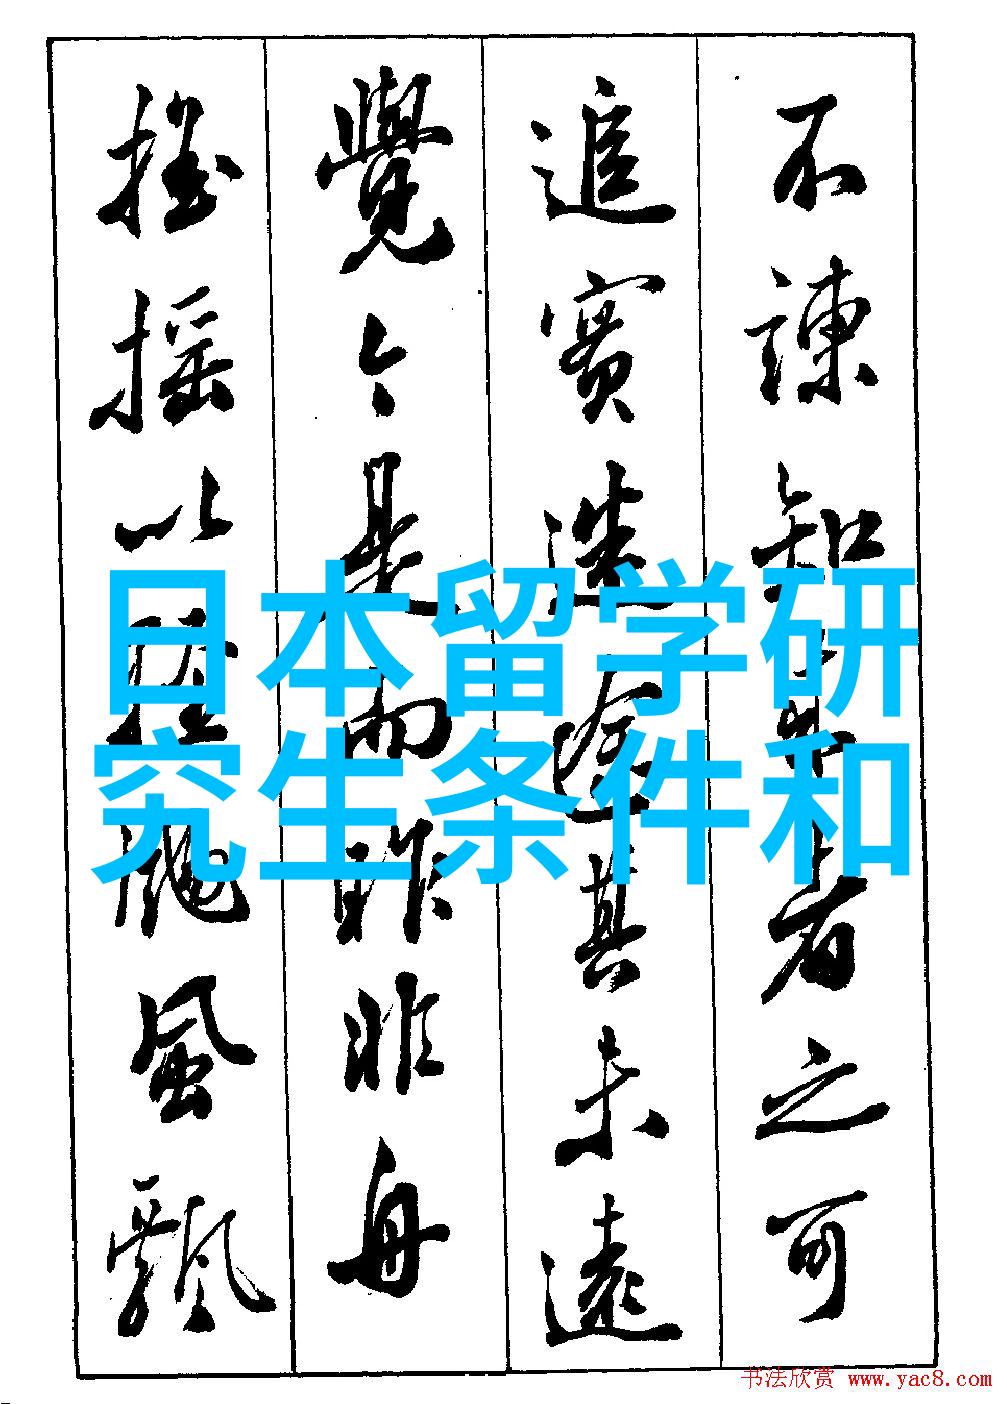 不諫知来者之可
追實迷途其未遠
覺今是而昨非舟
搖搖以輕颺風飄
日本留学研
究生条件和
书法欣赏 www.yac8.com